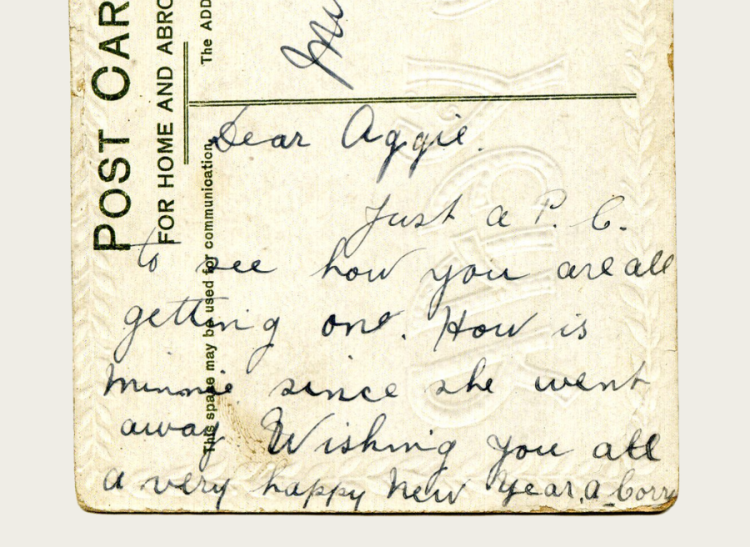 POST CAR
FOR HOME AND ABRO
The ADD
This space may be used for communication.
Dear Aggie.
Just a P. C.
to see how you are all
getting one. How is
Minnie since she went
away Wishing you all
a very happy New Year, a Corry